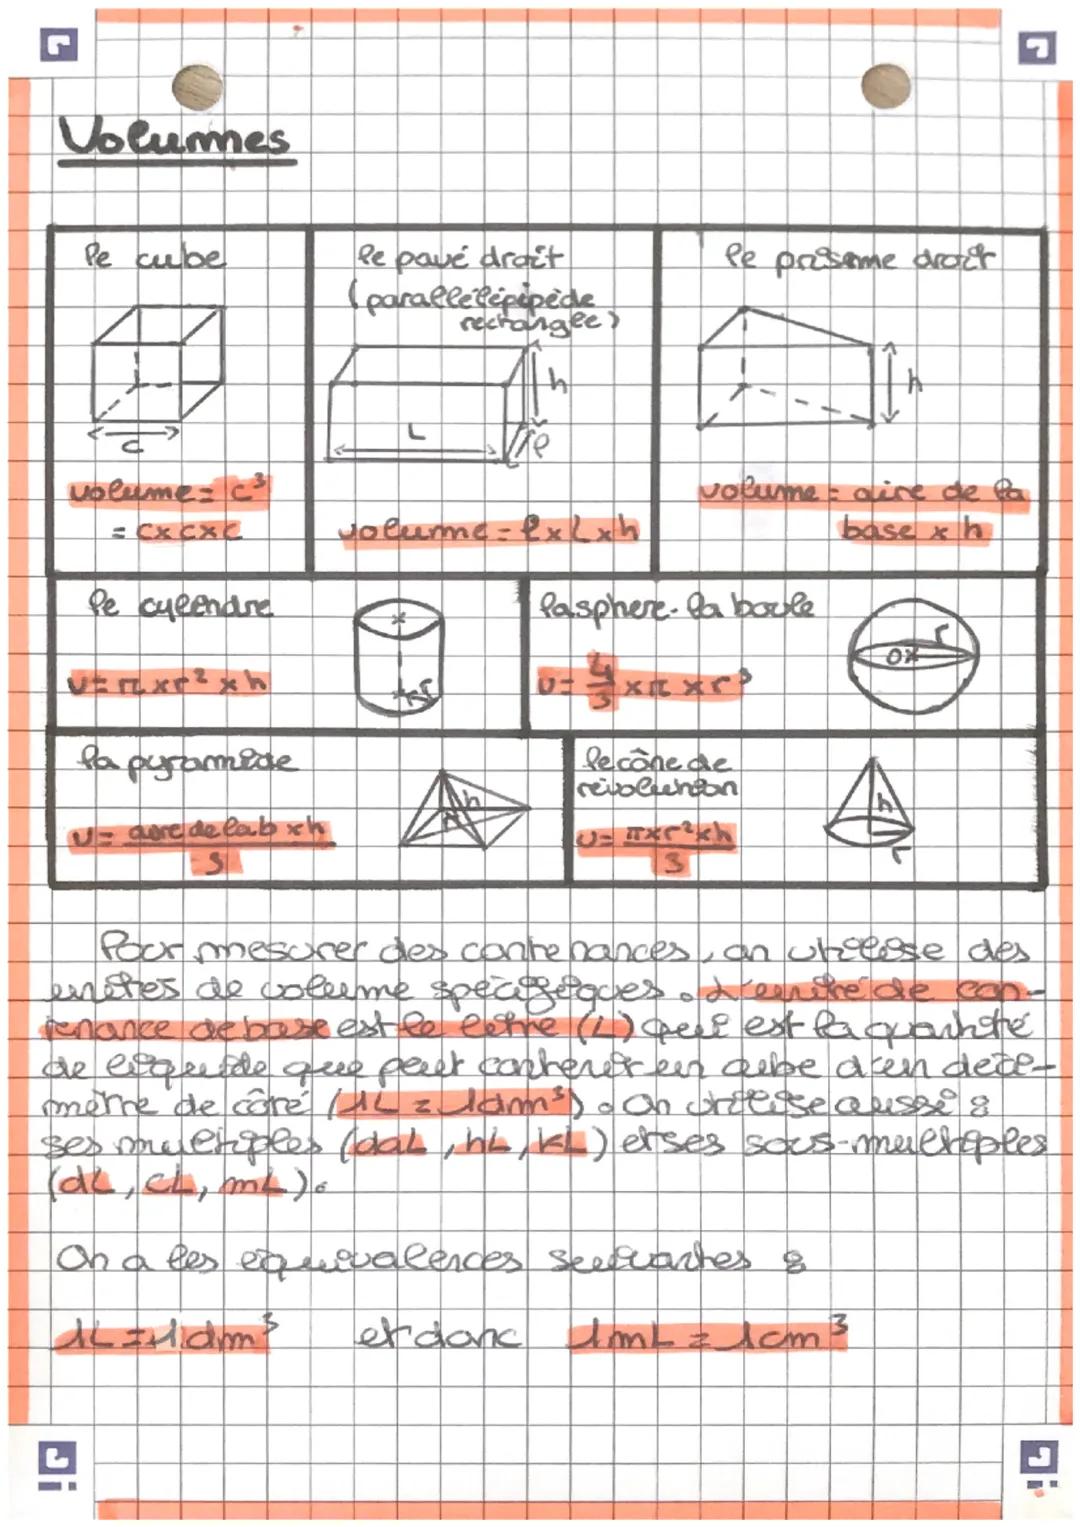 Volumes
le cube
c
volume = c³
= c x c x c
le pavé droit
(parallélépipède
rectangle)
h
L
l
volume = l x L x h
le prisme droit
h
volume = aire de la
base x h
le cylindre
r
V = π x r² x h
la sphere - la boule
r
O
V = 4/3 x π x r³
la pyramide
h
V = aire de la b x h
3
le cône de
révolution
h
r
V = π x r² x h
3
Pour mesurer des contenances, on utilise des
unités de volume spécifiques. L'unité de con-
tenance de base est le litre (L) qui est la quantité
de liquide que peut contenir un cube d'un déci-
mètre de côté (1L = 1dm³). On utilise aussi :
ses multiples (daL, hL, kL) et ses sous-multiples
(dL, cL, mL).
On a les équivalences suivantes :
1L = 1dm³ et donc 1mL = 1cm³